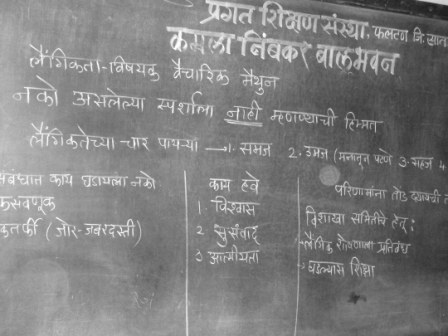 प्रगत शिक्षण संस्था, फलटण जि. साता
कमला निंबकर बालभवन
लैंगिकता-विषयक वैचारिक मैथुन
नको असलेल्या स्पर्शाला नाही म्हणण्याची हिम्मत
लैंगिकतेच्या चार पायऱ्या → 1. समज 2. उमज (मनातून पटणे 3. सहज 4
संबंधात काय घडायला नको
फसवणूक
(जोर-जबरदस्ती)
काय हवे
1. विश्वास
2. सुसंवाद
3. आत्मीयता
परिणामांना तोंड
विशाखा समितीचे हेतू:
- लैंगिक शोषणाला प्रतिबंध
- घडल्यास शिक्षा